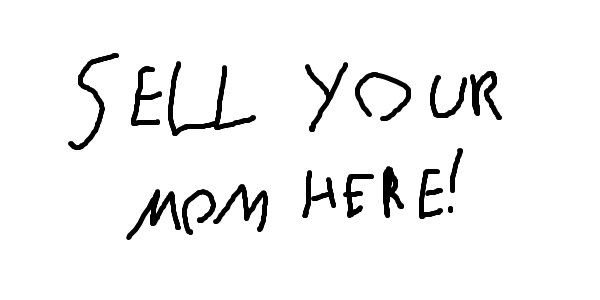 SELL YOUR
MOM HERE!